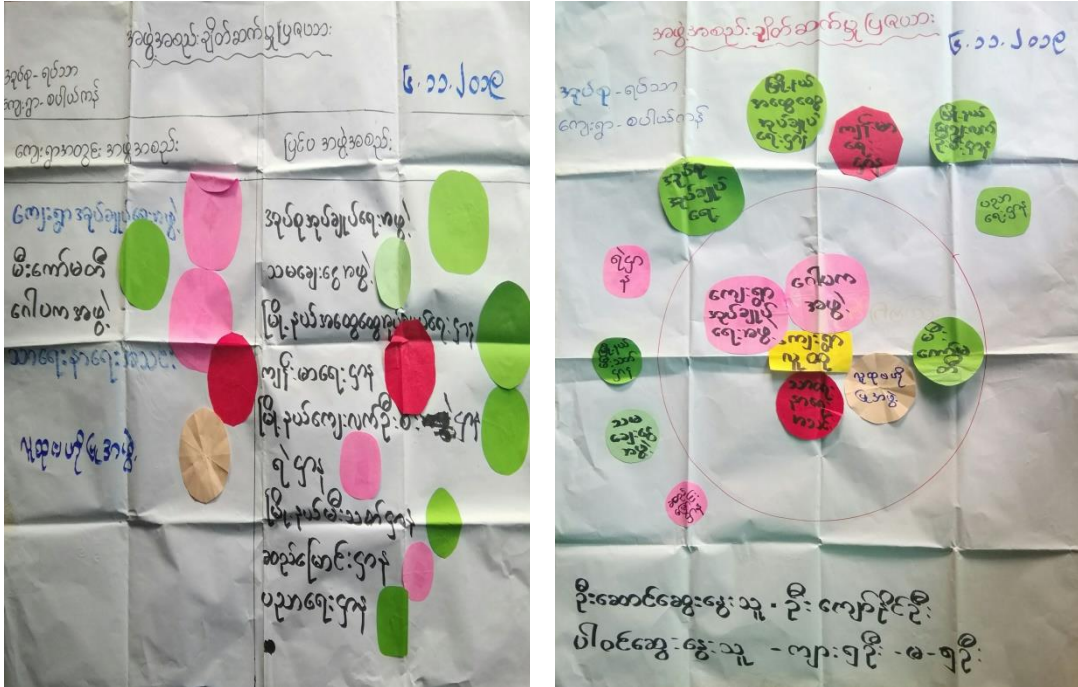 အဖွဲ့အစည်းချိတ်ဆက်မှုပြဇယား
၆.၁၁.၂၀၁၉
အုပ်စု - ရပ်သာ
ကျေးရွာ - စပါယ်ကန်
ကျေးရွာအတွင်း အဖွဲ့အစည်း
ပြင်ပ အဖွဲ့အစည်း
ကျေးရွာအုပ်ချုပ်ရေးအဖွဲ့
မီးကော်မတီ
ဂေါပကအဖွဲ့
သာရေးနာရေးအသင်း
လူထုဗဟိုပြုအဖွဲ့
အုပ်စုအုပ်ချုပ်ရေးအဖွဲ့
သမချေးငွေအဖွဲ့
မြို့နယ်အထွေထွေအုပ်ချုပ်ရေးဌာန
ကျန်းမာရေးဌာန
မြို့နယ်ကျေးလက်ဦးစီးဌာန
ရဲဌာန
မြို့နယ်မီးသတ်ဌာန
ဆည်မြောင်းဌာန
ပညာရေးဌာန
အဖွဲ့အစည်းချိတ်ဆက်မှုပြဇယား
၆.၁၁.၂၀၁၉
အုပ်စု - ရပ်သာ
ကျေးရွာ - စပါယ်ကန်
မြို့နယ်
အထွေထွေ
အုပ်ချုပ်
ရေးဌာန
ကျန်းမာ
ရေး
ဌာန
မြို့နယ်
ကျေးလက်
ဦးစီးဌာန
အုပ်စု
အုပ်ချုပ်
ရေး
ပညာ
ရေးဌာန
ရဲဌာ
န
ကျေးရွာ
အုပ်ချုပ်
ရေးအဖွဲ့
ဂေါပက
အဖွဲ့
ကျေးရွာ
လူထု
မီး
ကော်မတီ
မြို့နယ်
မီးသတ်
ဌာန
သာရေး
နာရေး
အသင်း
လူထုဗဟို
ပြုအဖွဲ့
သမ
ချေးငွေ
အဖွဲ့
ဆည်မြောင်း
ဌာန
ဦးဆောင်ဆွေးနွေးသူ - ဦးကျော်နိုင်ဦး
ပါဝင်ဆွေးနွေးသူ - ကျား ၅ဦး - မ - ၅ဦး